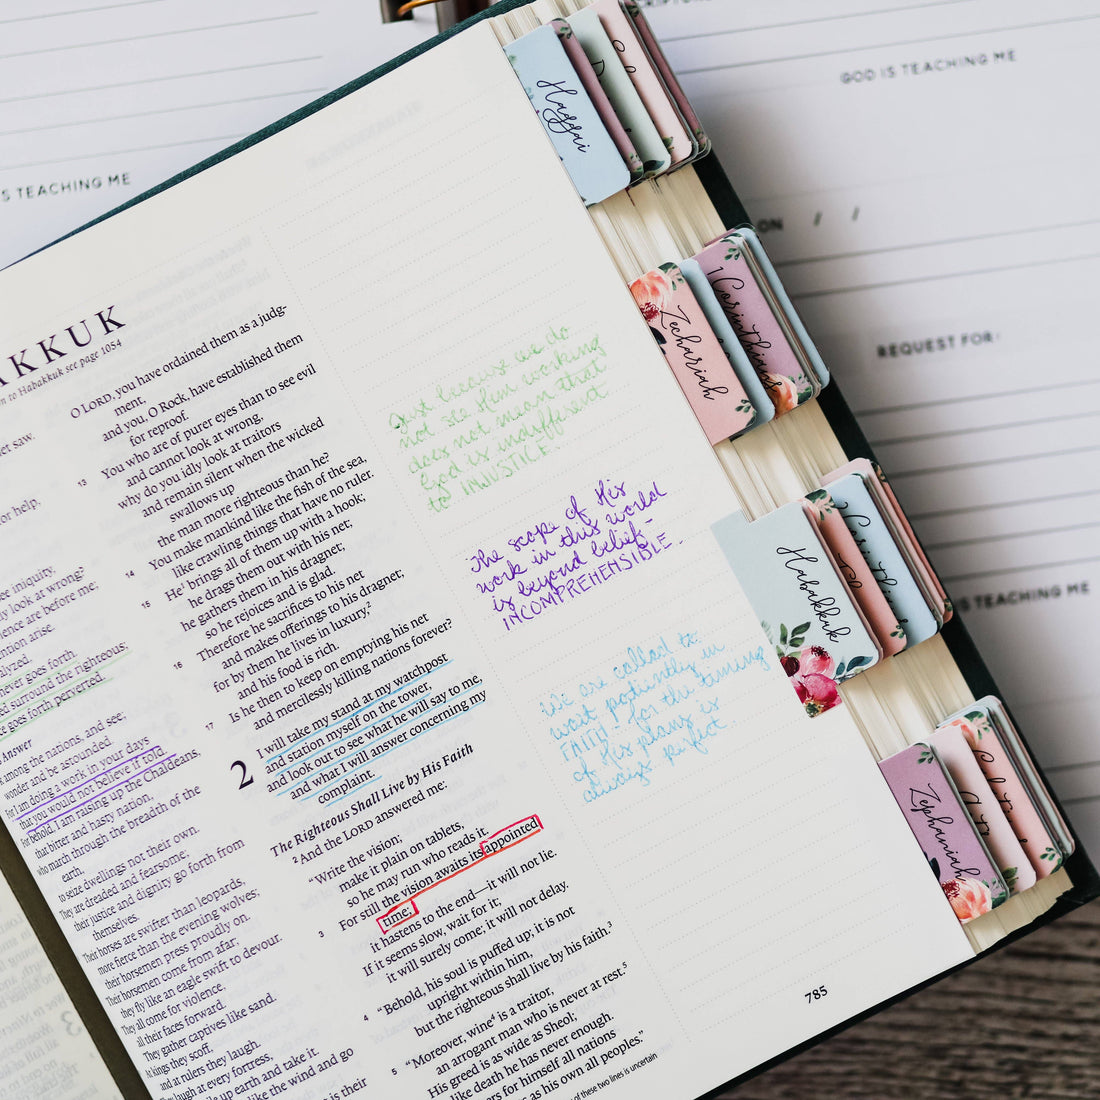 GOD IS TEACHING ME
S TEACHING ME
ON / /
REQUEST FOR:
IS TEACHING ME
Haggai
Zechariah
Corinthians
Habakkuk
Corinthians
Zephaniah
AKKUK
n to Habakkuk see page 1054
et saw.
or help,
ee iniquity,
ly look at wrong?
ence are before me;
ntion arise.
alyzed,
never goes forth.
ed surround the righteous;
e goes forth perverted.
Answer
among the nations, and see;
wonder and be astounded.
For I am doing a work in your days
that you would not believe if told.
For behold, I am raising up the Chaldeans,
that bitter and hasty nation,
who march through the breadth of the
earth,
to seize dwellings not their own.
They are dreaded and fearsome;
their justice and dignity go forth from
themselves.
Their horses are swifter than leopards,
more fierce than the evening wolves;
their horsemen press proudly on.
Their horsemen come from afar;
they fly like an eagle swift to devour.
They all come for violence,
all their faces forward.
They gather captives like sand.
At kings they scoff,
and at rulers they laugh.
They laugh at every fortress,
e up earth and take it.
like the wind and go
is their
O LORD, you have ordained them as a judg-
ment,
and you, O Rock, have established them
for reproof.
13 You who are of purer eyes than to see evil
and cannot look at wrong,
why do you idly look at traitors
and remain silent when the wicked
swallows up
the man more righteous than he?
14 You make mankind like the fish of the sea,
like crawling things that have no ruler.
15 He¹ brings all of them up with a hook;
he drags them out with his net;
he gathers them in his dragnet;
so he rejoices and is glad.
16 Therefore he sacrifices to his net
and makes offerings to his dragnet;
for by them he lives in luxury,²
and his food is rich.
17 Is he then to keep on emptying his net
and mercilessly killing nations forever?
2 I will take my stand at my watchpost
and station myself on the tower,
and look out to see what he will say to me,
and what I will answer concerning my
complaint.
The Righteous Shall Live by His Faith
² And the LORD answered me:
"Write the vision;
make it plain on tablets,
so he may run who reads it.
3 For still the vision awaits its appointed
time;
it hastens to the end—it will not lie.
If it seems slow, wait for it;
it will surely come; it will not delay.
4 "Behold, his soul is puffed up; it is not
upright within him,
but the righteous shall live by his faith.³
5 "Moreover, wine⁴ is a traitor,
an arrogant man who is never at rest.⁵
His greed is as wide as Sheol;
like death he has never enough.
ers for himself all nations
s as his own all peoples."
of these two lines is uncertain
Just because we do
not see Him working
does not mean that
God is indifferent
to INJUSTICE.
The scope of His
work in this world
is beyond belief-
INCOMPREHENSIBLE.
We are called to
wait patiently in
FAITH for the timing
of His plans is
always perfect.
785